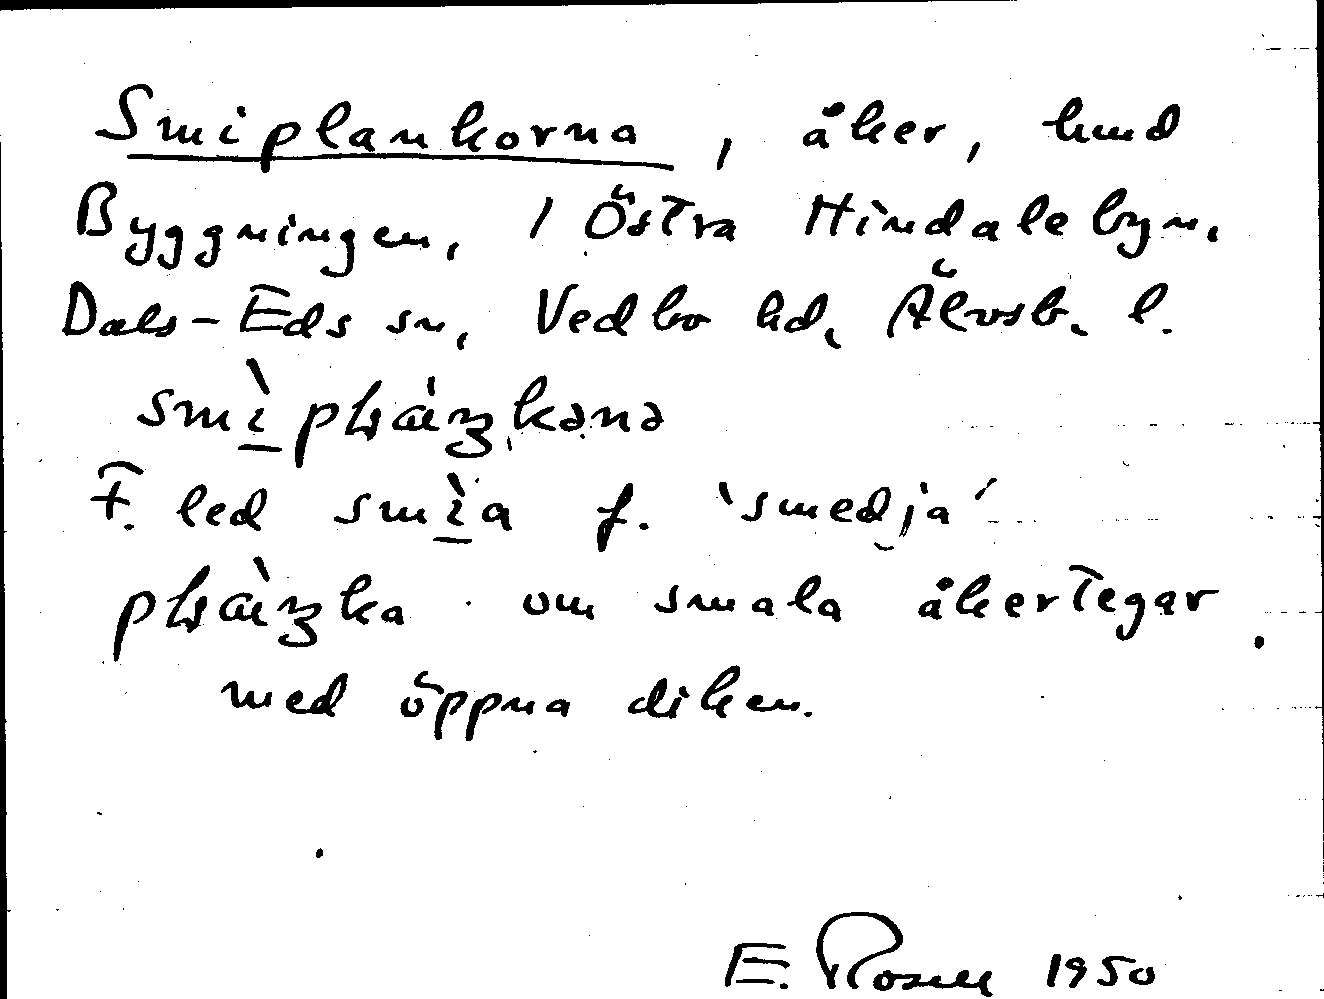 Smiplankorna, åker, hmd
Byggningen, 1 Östra Hindalebyn,
Dals-Eds sn, Vedbo hd, Älvsb. l.
F. led smìa f. 'smedja'
om smala åkertegar
med öppna diken.
E. Rosell 1950